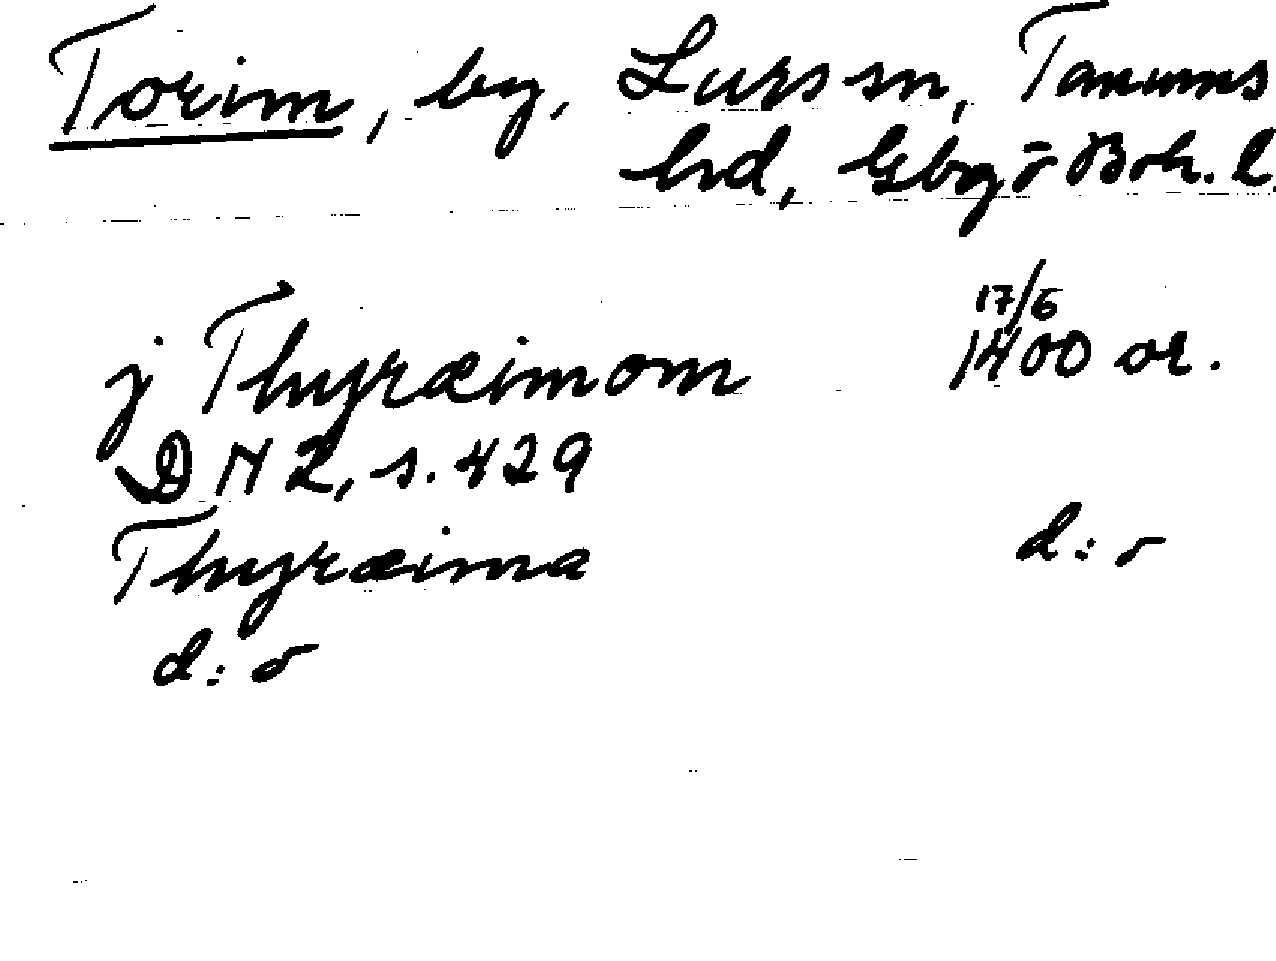 Torim, by, Lurs sn, Tanums
hd, Gbg o Boh. l.
17/6
j Thyræimom 1400 or.
DN 2, s. 429
Thyræima d:o
d:o